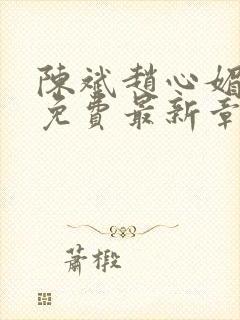 陳斌趙心媚
免費最新章
蕭椴